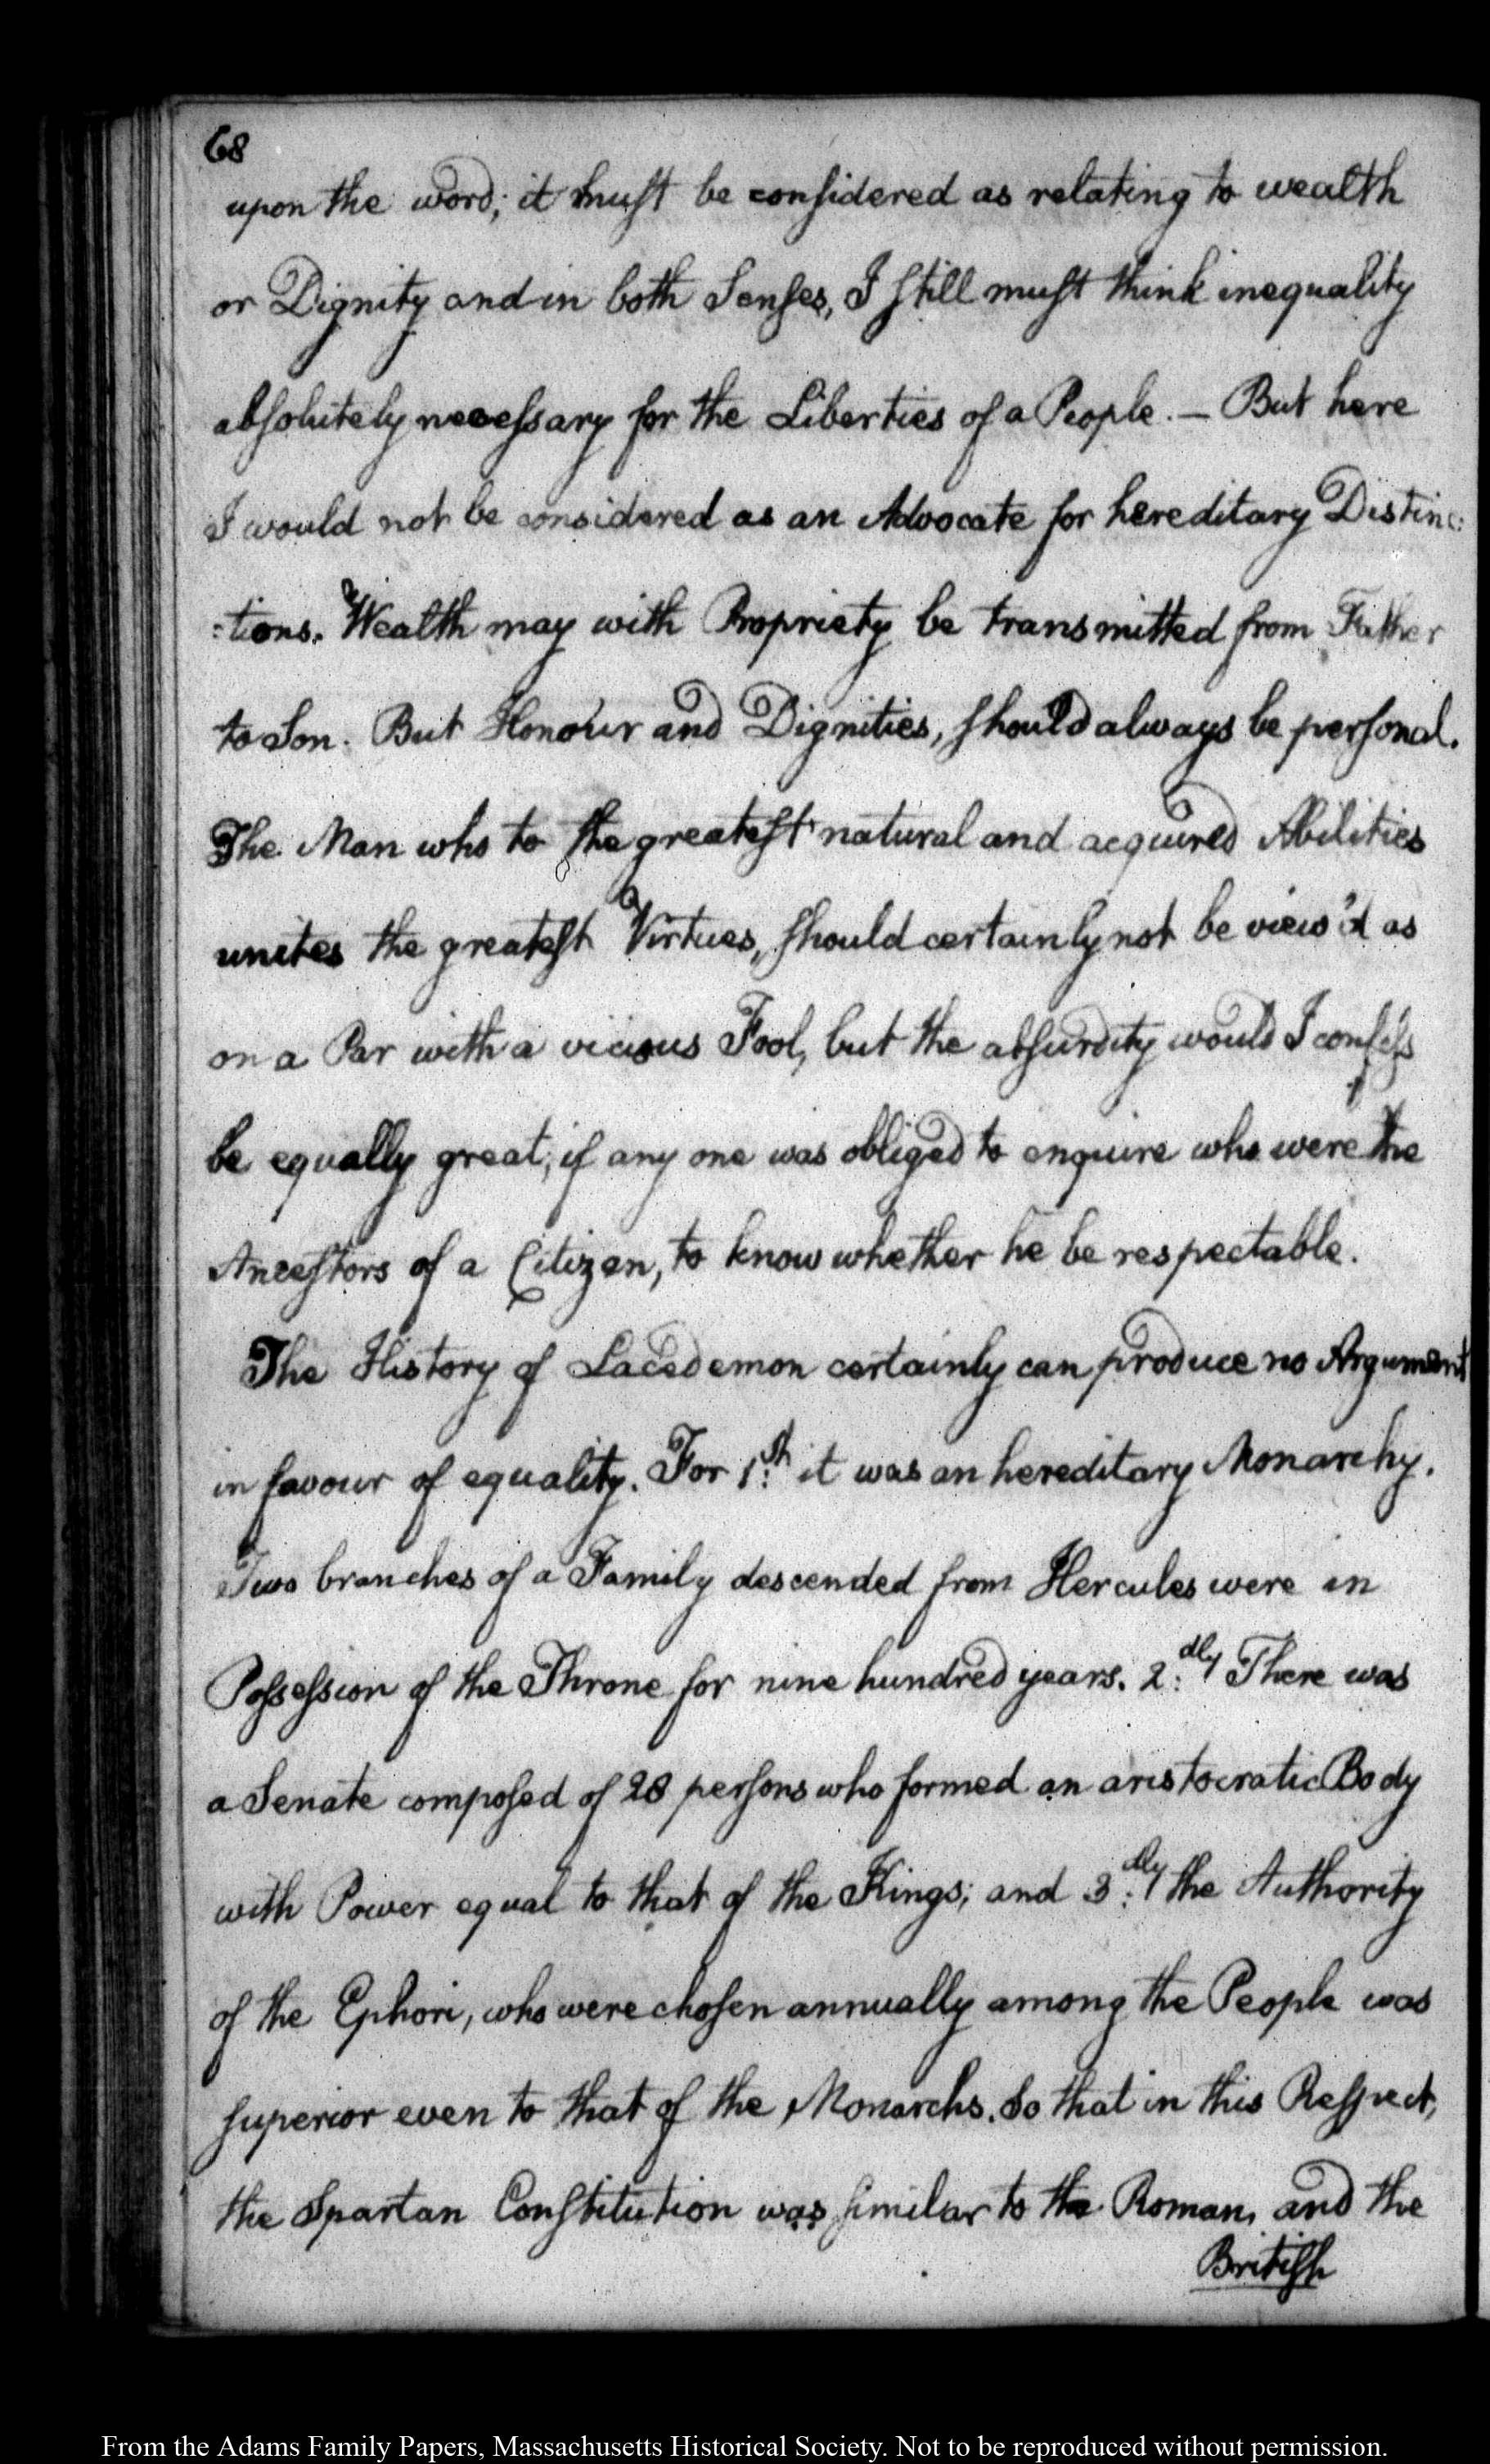 68
upon the word; it must be considered as relating to wealth
or Dignity and in both Senses, I still must think inequality
absolutely necessary for the Liberties of a People. — But here
I would not be considered as an Advocate for hereditary Distinc:
:tions. Wealth may with Propriety be transmitted from Father
to Son. But Honour and Dignities, should always be personal.
The Man who to the greatest natural and acquired Abilities
unites the greatest Virtues, should certainly not be view'd as
on a Par with a vicious Fool, but the absurdity would I confess
be equally great, if any one was obliged to enquire who were the
Ancestors of a Citizen, to know whether he be respectable.
The History of Lacedemon certainly can produce no Argument
in favour of equality. For 1:st it was an hereditary Monarchy.
Two branches of a Family descended from Hercules were in
Possession of the Throne for nine hundred years. 2:dly There was
a Senate composed of 28 persons who formed an aristocratic Body
with Power equal to that of the Kings; and 3:dly the Authority
of the Ephori, who were chosen annually among the People was
superior even to that of the Monarchs. So that in this Respect,
the Spartan Constitution was similar to the Roman, and the
British
From the Adams Family Papers, Massachusetts Historical Society. Not to be reproduced without permission.